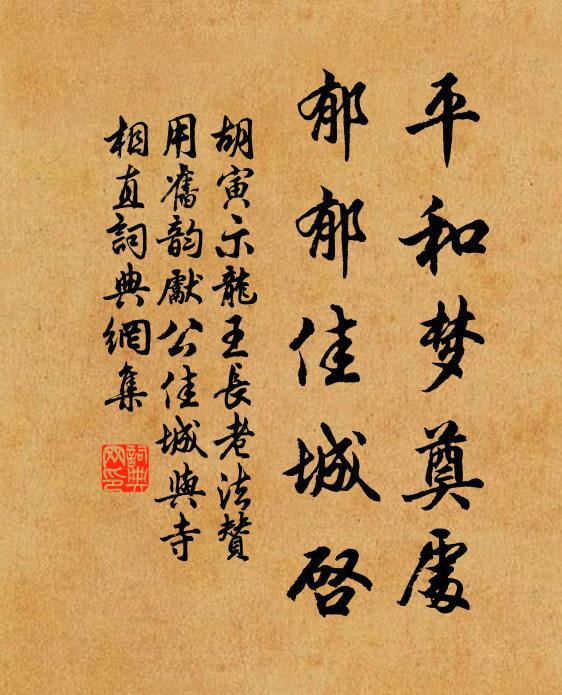 平和梦奠處
郁郁佳城啓
胡寅示龍王長老法贊
用舊韵獻公佳城與寺
相直詞典網集
詞典
网印